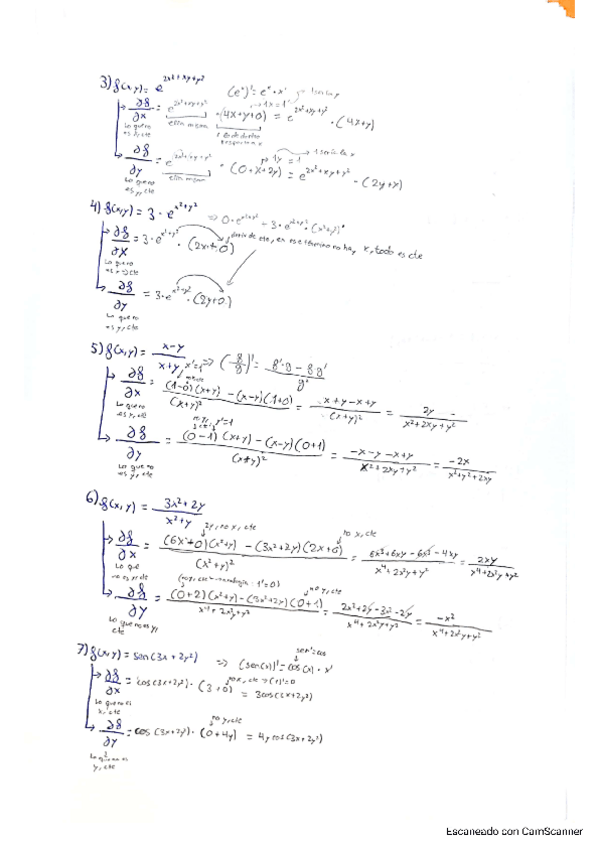 3) f(x,y) = e^(2x²+xy+y²) (eˣ)' = eˣ · x'
∂f/∂x = e^(2x²+xy+y²) · (4x+y+0) = e^(2x²+xy+y²) · (4x+y)
Lo que no es x, cte
ella misma
∂f/∂y = e^(2x²+xy+y²) · (0+x+2y) = e^(2x²+xy+y²) · (2y+x)
Lo que no es y, cte
ella misma
4) f(x,y) = 3 · e^(x²+y²) ⇒ 0 · e^(x²+y²) - 3 · e^(x²+y²) · (x²+y²)'
∂f/∂x = 3 · e^(x²+y²) · (2x+0)
Lo que no es x ⇒ cte
en ese término no hay x, todo es cte
∂f/∂y = 3 · e^(x²+y²) · (2y+0)
Lo que no es y, cte
5) f(x,y) = (x-y)/(x+y) x'=1 ⇒ (f/g)' = (f'·g - fg')/g²
∂f/∂x = ((1-0)(x+y) - (x-y)(1+0))/(x+y)² = (x+y-x+y)/(x+y)² = 2y/(x²+2xy+y²)
Lo que no es x, cte
y'=1
∂f/∂y = ((0-1)(x+y) - (x-y)(0+1))/(x+y)² = (-x-y-x+y)/(x²+2xy+y²) = -2x/(x²+y²+2xy)
Lo que no es y, cte
6) f(x,y) = (3x²+2y)/(x²+y)
2y, no x, cte no x, cte
∂f/∂x = ((6x+0)(x²+y) - (3x²+2y)(2x+0))/(x²+y)² = (6x³+6xy-6x³-4xy)/(x⁴+2x²y+y²) = 2xy/(x⁴+2x²y+y²)
Lo que no es x, cte
no y, cte
∂f/∂y = ((0+2)(x²+y) - (3x²+2y)(0+1))/(x⁴+2x²y+y²) = (2x²+2y-3x²-2y)/(x⁴+2x²y+y²) = -x²/(x⁴+2x²y+y²)
Lo que no es y, cte
7) f(x,y) = sen(3x+2y²) ⇒ (sen(x))' = cos(x) · x'
sen'=cos
∂f/∂x = cos(3x+2y²) · (3+0) = 3cos(3x+2y²)
Lo que no es x, cte
no y, cte
∂f/∂y = cos(3x+2y²) · (0+4y) = 4y cos(3x+2y²)
Lo que no es y, cte
Escaneado con CamScanner